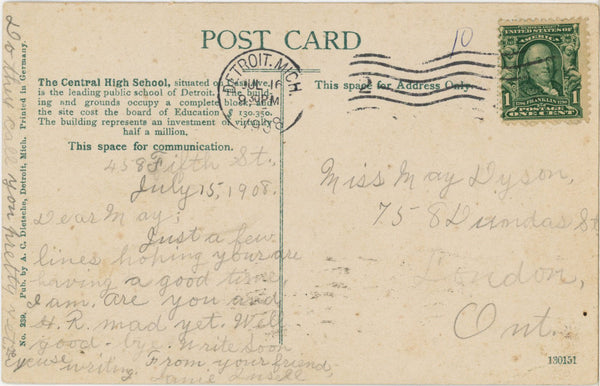 POST CARD
10
The Central High School, situated on Cass Ave.,
is the leading public school of Detroit. The build-
ing and grounds occupy a complete block, and
the site cost the board of Education $ 130.350.
The building represents an investment of virtually
half a million.
This space for communication.
This space for Address Only.
DETROIT, MICH.
JUL 16
PM
1908
UNITED STATES OF
AMERICA
1 1
FRANKLIN
ONE CENT
458 Fifth St.,
July 15, 1908.
Dear May;
Just a few
lines hoping your are
having a good time,
I am. Are you and
H. R. mad yet. Well
good-bye. Write soon
Excuse writing. From your friend,
Miss May Dyson,
758 Dundas St
London,
Ont.
No. 239. Pub. by A. C. Dietsche, Detroit, Mich. Printed in Germany.
130151